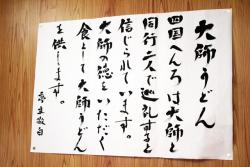 大師うどん
四国へんろは大師と
同行二人で巡礼すると
信じられています。
大師の徳をいただく
食として大師うどん
を供します。
亭主敬白